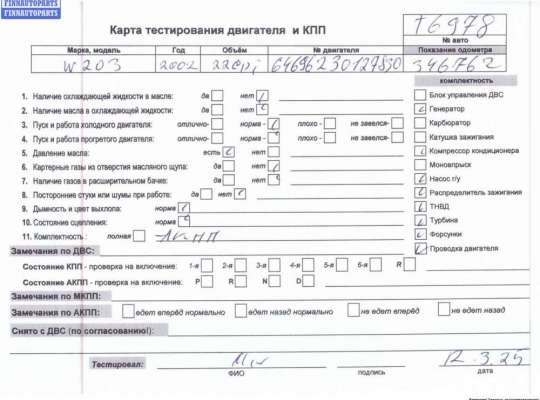 FINNAUTOPARTS
FINNAUTOPARTS
Карта тестирования двигателя и КПП
T6978
№ авто
Марка, модель Год Объём № двигателя Показание одометра
W203 2002 22cpi 64696230127830 346762
комплектность
1. Наличие охлаждающей жидкости в масле: да нет
2. Наличие масла в охлаждающей жидкости: да нет
3. Пуск и работа холодного двигателя: отлично- норма - плохо - не завелся-
4. Пуск и работа прогретого двигателя: отлично- норма - плохо - не завелся-
5. Давление масла: есть нет
6. Картерные газы из отверстия масляного щупа: да нет
7. Наличие газов в расширительном бачке: да нет
8. Посторонние стуки или шумы при работе: да нет
9. Дымность и цвет выхлопа: норма
10. Состояние сцепления: норма
11. Комплектность : полная
Блок управления ДВС
Генератор
Карбюратор
Катушка зажигания
Компрессор кондиционера
Моновпрыск
Насос г/у
Распределитель зажигания
ТНВД
Турбина
Форсунки
Проводка двигателя
Замечания по ДВС:
Состояние КПП - проверка на включение: 1-я 2-я 3-я 4-я 5-я 6-я R
Состояние АКПП - проверка на включение: P R N D
Замечания по МКПП:
Замечания по АКПП: едет вперёд нормально едет назад нормально не едет вперёд не едет назад
Снято с ДВС (по согласованию!):
Тестировал: 12.3.25
ФИО подпись дата